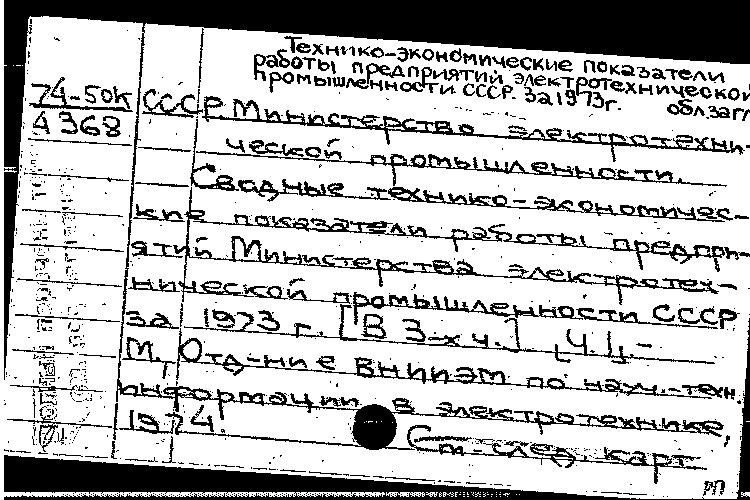 Технико-экономические показатели
работы предприятий электротехнической
промышленности СССР. За 1973г. обл.загл
74-50к
4368
СССР. Министерство электротехни-
ческой промышленности.
Сводные технико-экономичес-
кие показатели работы предпри-
ятий Министерства электротех-
нической промышленности СССР
за 1973 г. [В 3-х ч.] Ч. I. -
М., Отд-ние ВНИИЭМ по науч.-техн.
информации в электротехнике,
1974.
См. след. карт